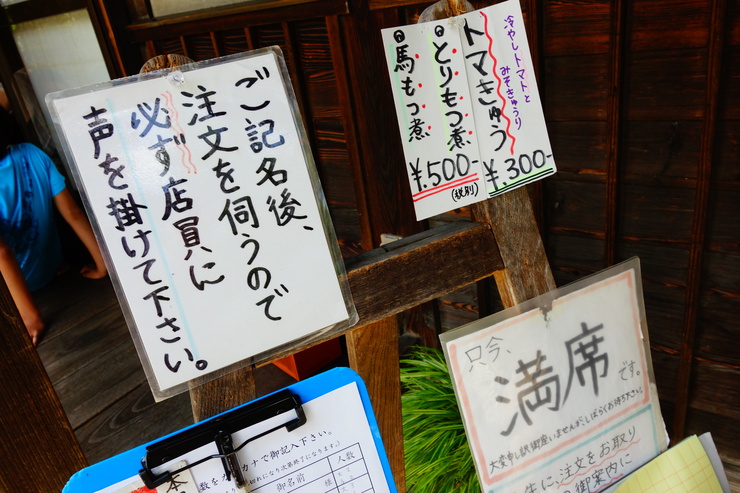 ご記名後、
注文を伺うので
必ず店員に
声を掛けて下さい。
冷やしトマトと
みそきゅうり
トマきゅう
¥300-
とりもつ煮
馬もつ煮
¥500-
(税別)
只今、
満席
です。
大変申し訳御座いませんが、しばらくお待ち下さい。
先に、注文をお取り
御案内に
カナで御記入下さい。
切れになり次第終了になります。
御名前
様
人数